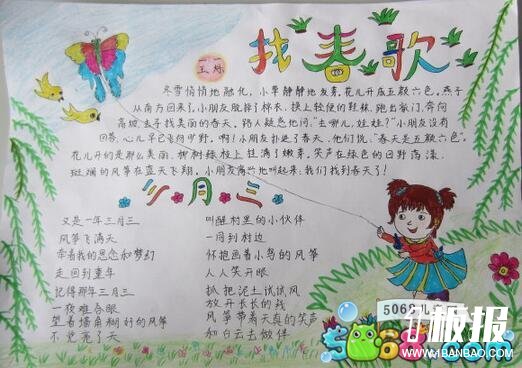 找春歌
冬雪悄悄地融化，小草静静地发芽。花儿开成五颜六色，燕子
从南方回来了。小朋友脱掉了棉衣，换上轻便的鞋袜，跑出家门，奔向
高坡，去寻找美丽的春天。路人疑惑地问：“去哪儿，娃娃？”小朋友没有
回答，心儿早已飞向
啊！小朋友扑进了春天，他们说：“春天是五颜六色”。
花儿开的是那么美丽，柳树绿枝上挂满了嫩芽。笑声在绿色的田野荡漾，
斑斓的风筝在蓝天飞翔。小朋友高兴地叫起来：我们找到春天了！
三月三
又是一年三月三
风筝飞满天
牵着我的思念和梦幻
走回到童年
记得那年三月三
一夜难合眼
望着墙角糊好的风筝
不觉亮了天
叫醒村里的小伙伴
一同到村边
怀抱画着小鸟的风筝
人人笑开眼
抓把泥土试试风
放开长长的线
风筝带着天真的笑声
和白云去做伴
5068儿
1板报
WWW.1BANBAO.COM